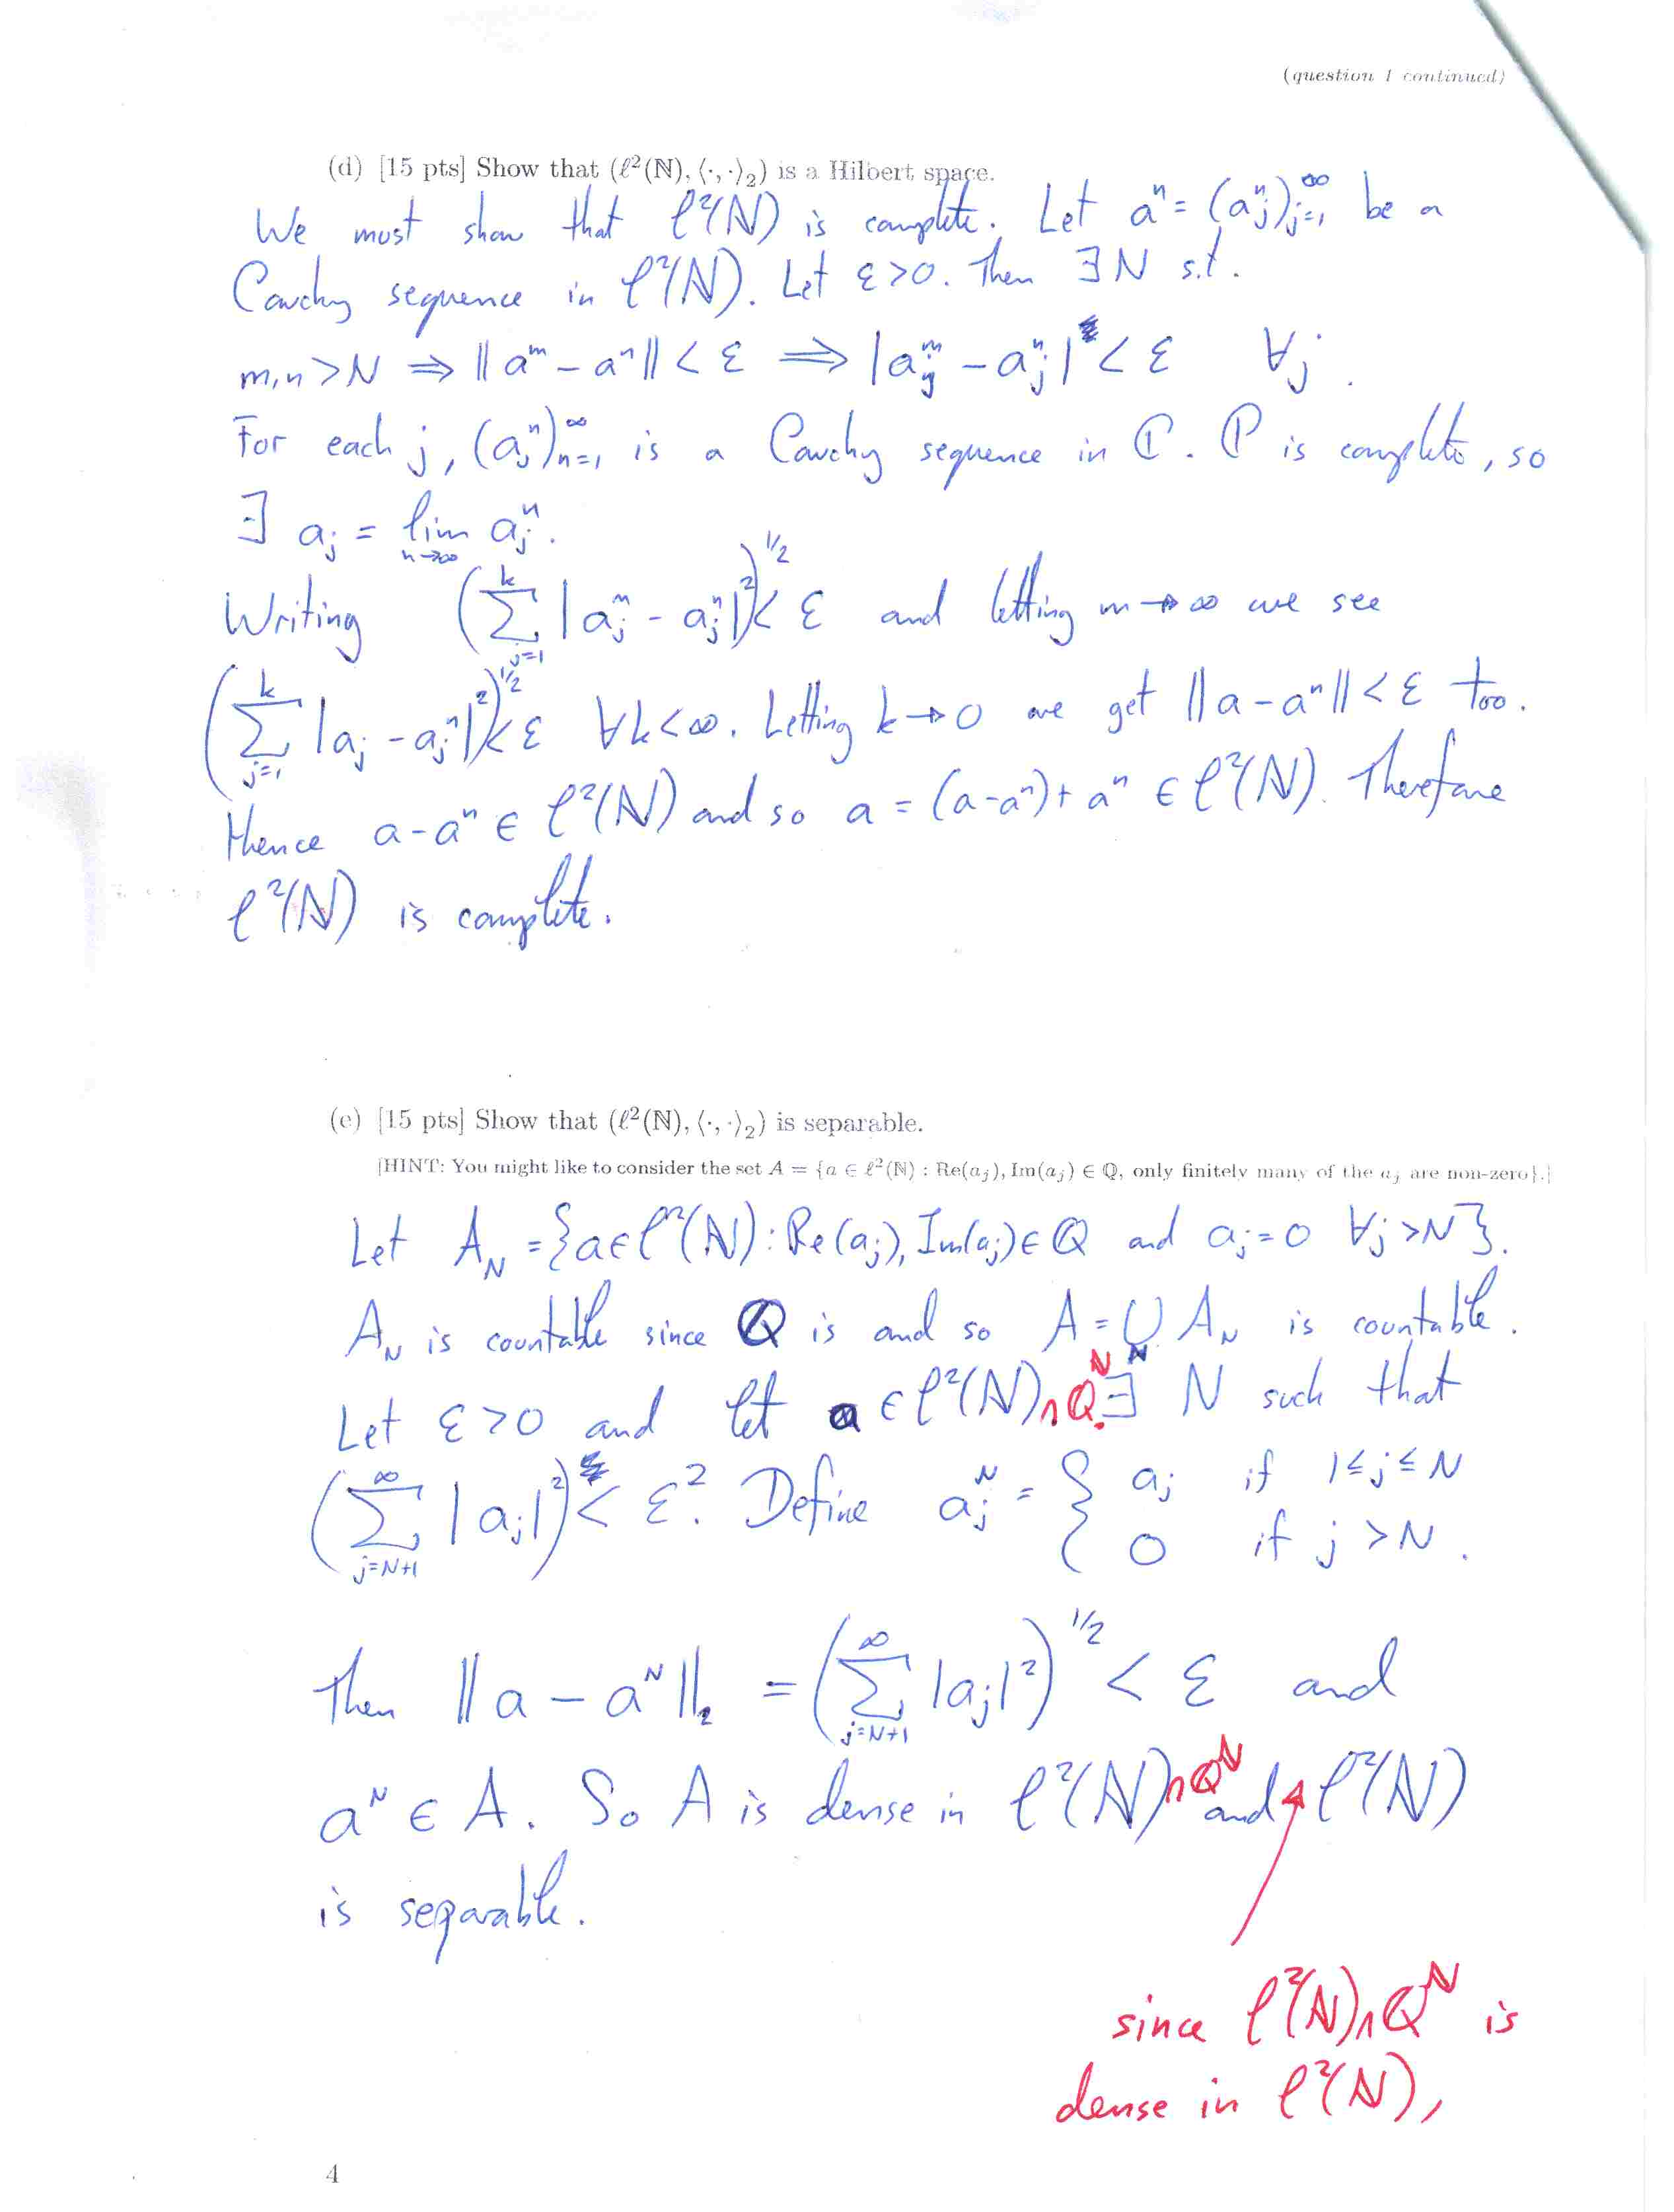 (question 1 continued)
(d) [15 pts] Show that (ℓ²(ℕ), ⟨·, ·⟩₂) is a Hilbert space.
We must show that ℓ²(ℕ) is complete. Let aⁿ = (aⱼⁿ)_{j=1}^∞ be a
Cauchy sequence in ℓ²(ℕ). Let ε>0. Then ∃ N s.t.
m,n > N ⇒ ‖aᵐ − aⁿ‖ < ε ⇒ |aⱼᵐ − aⱼⁿ| < ε ∀j.
For each j, (aⱼⁿ)_{n=1}^∞ is a Cauchy sequence in ℂ. ℂ is complete, so
∃ aⱼ = lim_{n→∞} aⱼⁿ.
Writing (∑_{j=1}^k |aⱼᵐ − aⱼⁿ|²)^{1/2} < ε and letting m→∞ we see
(∑_{j=1}^k |aⱼ − aⱼⁿ|²)^{1/2} < ε ∀k<∞. Letting k→0 we get ‖a−aⁿ‖ < ε too.
Hence a−aⁿ ∈ ℓ²(ℕ) and so a = (a−aⁿ) + aⁿ ∈ ℓ²(ℕ). Therefore
ℓ²(ℕ) is complete.
(e) [15 pts] Show that (ℓ²(ℕ), ⟨·, ·⟩₂) is separable.
[HINT: You might like to consider the set A = {a ∈ ℓ²(ℕ) : Re(aⱼ), Im(aⱼ) ∈ ℚ, only finitely many of the aⱼ are non-zero}.]
Let A_N = {a∈ℓ²(ℕ) : Re(aⱼ), Im(aⱼ) ∈ ℚ and aⱼ = 0 ∀j > N}.
A_N is countable since ℚ is and so A = ⋃_N A_N is countable.
Let ε>0 and let a ∈ ℓ²(ℕ)∩ℚ^ℕ. ∃ N such that
(∑_{j=N+1}^∞ |aⱼ|²) < ε². Define aⱼᴺ = { aⱼ if 1≤j≤N
0 if j > N.
Then ‖a − aᴺ‖₂ = (∑_{j=N+1}^∞ |aⱼ|²)^{1/2} < ε and
aᴺ ∈ A. So A is dense in ℓ²(ℕ)∩ℚ^ℕ and ℓ²(ℕ)
is separable.
since ℓ²(ℕ)∩ℚ^ℕ is
dense in ℓ²(ℕ),
4